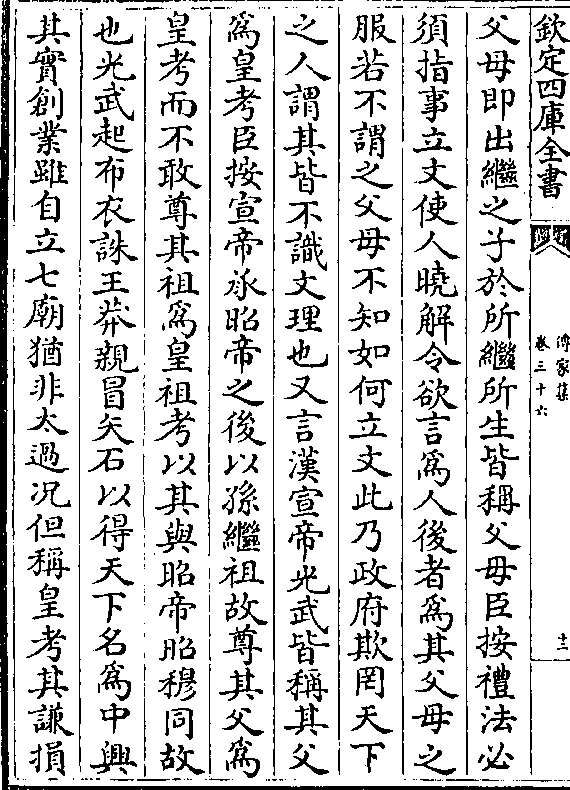 欽定四庫全書
傳家集
卷三十六
十三
父母即出繼之子於所繼所生皆稱父母臣按禮法必
須指事立文使人曉解令欲言為人後者為其父母之
服若不謂之父母不知如何立文此乃政府欺罔天下
之人謂其皆不識文理也又言漢宣帝光武皆稱其父
為皇考臣按宣帝承昭帝之後以孫繼祖故尊其父為
皇考而不敢尊其祖為皇祖考以其與昭帝昭穆同故
也光武起布衣誅王莽親冒矢石以得天下名為中興
其實創業雖自立七廟猶非太過况但稱皇考其謙損